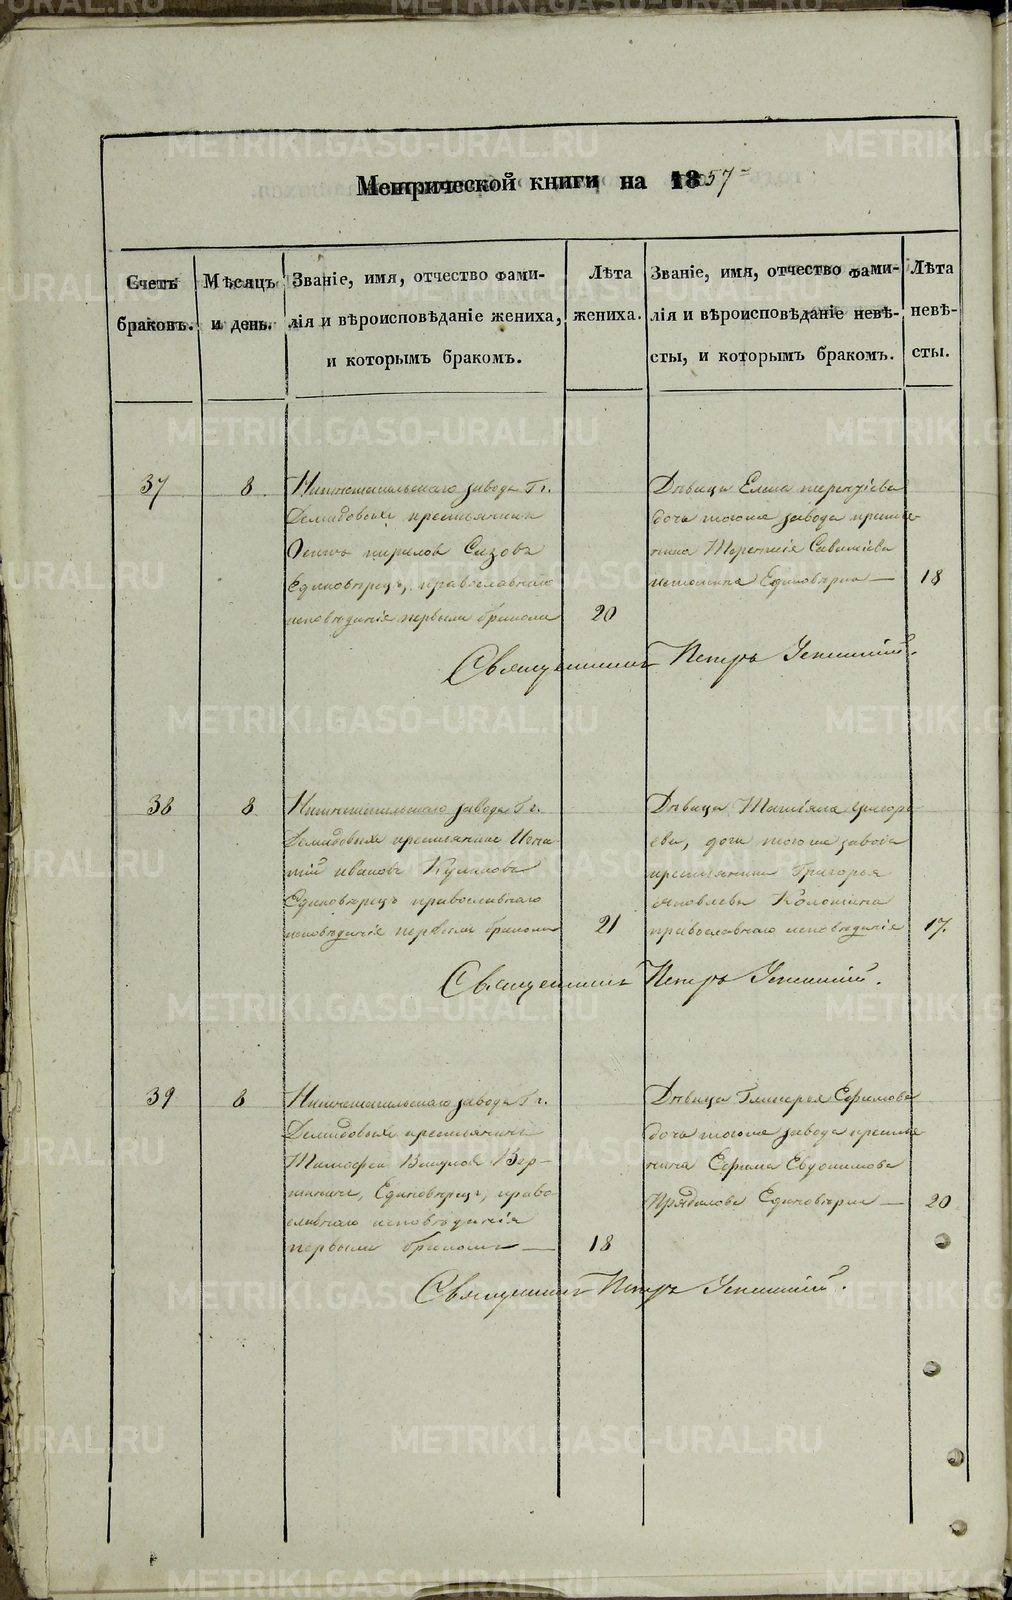 Метрической книги на 1857
Счетъ браковъ.
Мѣсяцъ и день.
Званіе, имя, отчество фами-
лія и вѣроисповѣданіе жениха,
и которымъ бракомъ.
Лѣта жениха.
Званіе, имя, отчество фами-
лія и вѣроисповѣданіе невѣ-
сты, и которымъ бракомъ.
Лѣта невѣ-
сты.
37
8
Нижнетагильскаго завода Гг.
Демидовыхъ крестьянинъ
Осипъ Кириловъ Сизовъ
Единовѣрецъ, православнаго
исповѣданія первымъ бракомъ
20
Дѣвица Елена Терентіева
дочь тогоже завода кресть-
янина Терентія Саватіева
Единовѣрка —
18
Священникъ Петръ Успенскій.
38
8
Нижнетагильскаго завода Гг.
Демидовыхъ крестьянинъ Игна-
тій Ивановъ Куликовъ
Единовѣрецъ православнаго
исповѣданія первымъ бракомъ
21
Дѣвица Татіяна Григорь-
ева, дочь тогоже завода
крестьянина Григорья
Яковлева
православнаго исповѣданія
17.
Священникъ Петръ Успенскій.
39
8
Нижнетагильскаго завода Гг.
Демидовыхъ крестьянинъ
Тимофей
Единовѣрецъ, право-
славнаго исповѣданія
первымъ бракомъ —
18
Дѣвица Гликерья Ефимова
дочь тогоже завода кресть-
янина Ефима Евдокимова
Единовѣрка —
20
Священникъ Петръ Успенскій.
METRIKI.GASO-URAL.RU